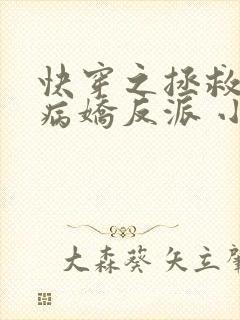 快穿之拯救
病嬌反派 小
大森葵 矢立肇